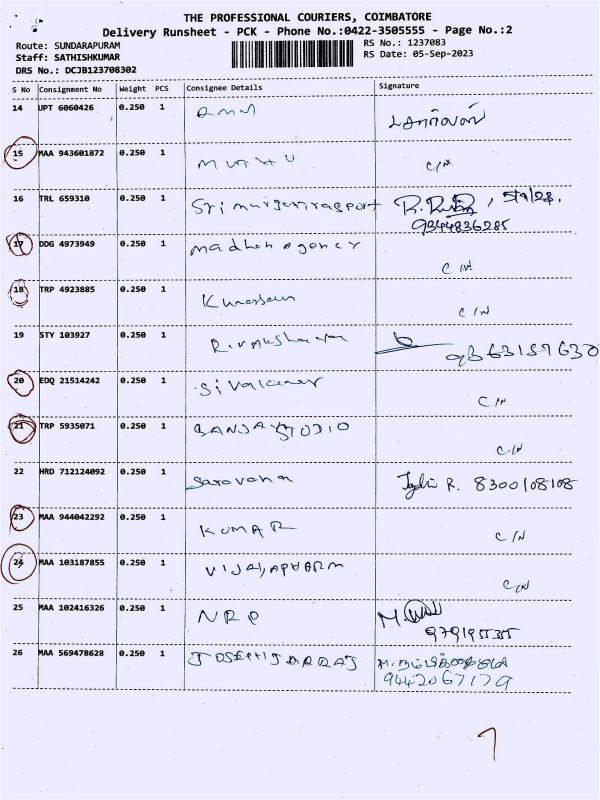 THE PROFESSIONAL COURIERS, COIMBATORE
Delivery Runsheet - PCK - Phone No.:0422-3505555 - Page No.:2
Route: SUNDARAPURAM RS No.: 1237083
Staff: SATHISHKUMAR RS Date: 05-Sep-2023
DRS No.: DCJB123708302
S No Consignment No Weight PCS Consignee Details Signature
14 UPT 6060426 0.250 1
15 MAA 943601872 0.250 1 MUTHU C/N
16 TRL 659310 0.250 1
9344836285
17 DDG 4973949 0.250 1 madhan agency C/N
18 TRP 4923885 0.250 1 C/N
19 STY 103927 0.250 1
9363159630
20 EDQ 21514242 0.250 1 C/N
21 TRP 5935071 0.250 1 SANJAY STUDIO C/N
22 HRD 712124092 0.250 1 Saravana R. 8300108108
23 MAA 944042292 0.250 1 KUMAR C/N
24 MAA 103187855 0.250 1 C/N
25 MAA 102416326 0.250 1 NRP M.
26 MAA 569478628 0.250 1
9442067179
7